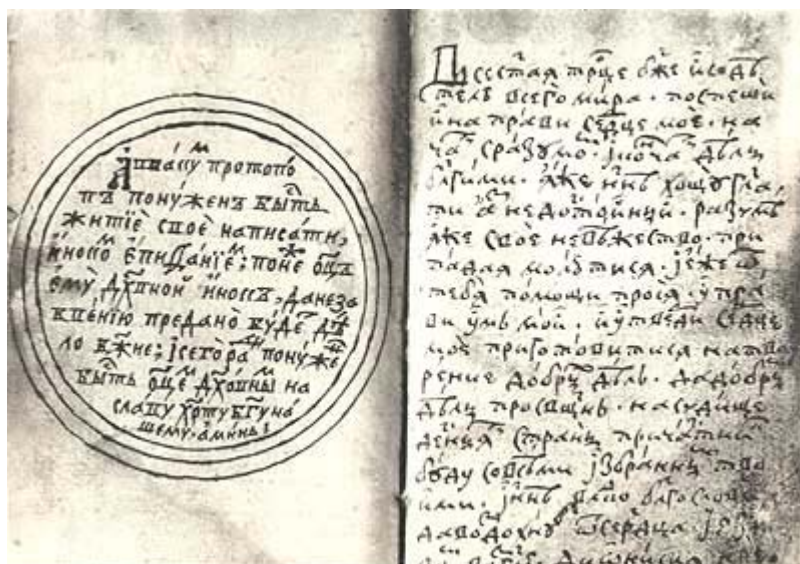 Аввакуⷨ протопо
пъ пону́женъ бы́сть
житїѐ своѐ написа́ти,
и́нокоⷨ е҆пифа́нїеⷨ; поне́ⷤ ѻ҆ц҃ъ
е҆мꙋ̀ дх҃о́вной и҆нокъ, да не за
бве́нїю предано̀ бꙋ́деⷮ дѣ́
ло бж҃ие; ꙇ҆ сего̀ раⷣ понꙋ́же́ⷩ
бы́сть ѻ҆ц҃еⷨ дх҃о́вныⷨ на
сла́вꙋ хрⷭ҇тꙋ̀ бг҃ꙋ на́
шемꙋ. а҆ми́нь:
Всест҃а́я трⷪ҇це бж҃е и҆ содѣ́
тель всего̀ ми́ра. поспешѝ
и҆ напра́ви се́рⷣце моѐ. на
чаⷮ с ра́зꙋмоⷨ. ꙇ҆ кѡнча́ⷮ дѣ́лы
бл҃ги́ми. ꙗ҆́же нн҃ѣ хощꙋ̀ гл҃а́
ти а҆́з недосто́йный. разꙋмѣ́
ꙗ҆́же своѐ невѣ́жество. при
па́дая мо́лютися. ꙇ҆ е҆́же ѿ
тебя̀ по́мощи прося̀. ᲂу҆пра́
ви ᲂу҆́мъ мо́й. и҆ ᲂу҆твердѝ се́рⷣце
моѐ пригото́витися на тво
ре́ние до́брыⷯ дѣ́лъ. да до́бры
дѣ́лы просвѣщѐнъ. на сꙋди́ще
десны́я ти страны̀ прича́стниⷦ
бꙋ́дꙋ со всѣ́ми ꙇ҆збра́нныⷨ тво
и́ми. ꙇ҆ нн҃ѣ влⷣко бл҃гословѝ.
да воздохнꙋ́въ ѿ се́рдца. ꙇ҆ ꙗ҆зы́